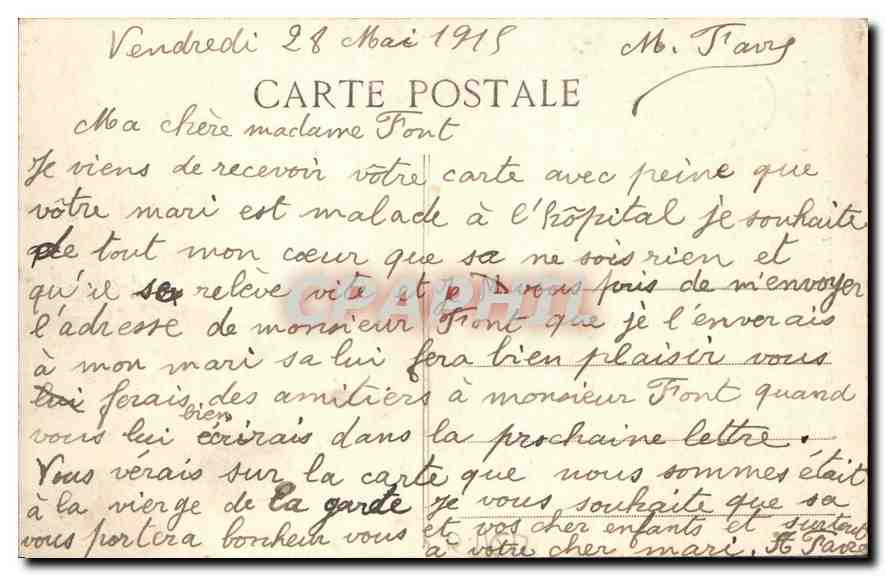 Vendredi 28 Mai 1915 M. Favre
CARTE POSTALE
Ma chère madame Font
Je viens de recevoir vôtre carte avec peine que
vôtre mari est malade à l'hôpital je souhaite
de tout mon cœur que sa ne sois rien et
qu'il se relève vite et je vous pris de m'envoyer
l'adresse de monsieur Font que je l'enverais
à mon mari sa lui fera bien plaisir vous
lui ferais des amitiers à monsieur Font quand
vous lui bien écrirais dans la prochaine lettre.
Vous vérais sur la carte que nous sommes était
à la vierge de la garde je vous souhaite que sa
vous portera bonheur vous et vos cher enfants et surtout
a votre cher mari. A Favre